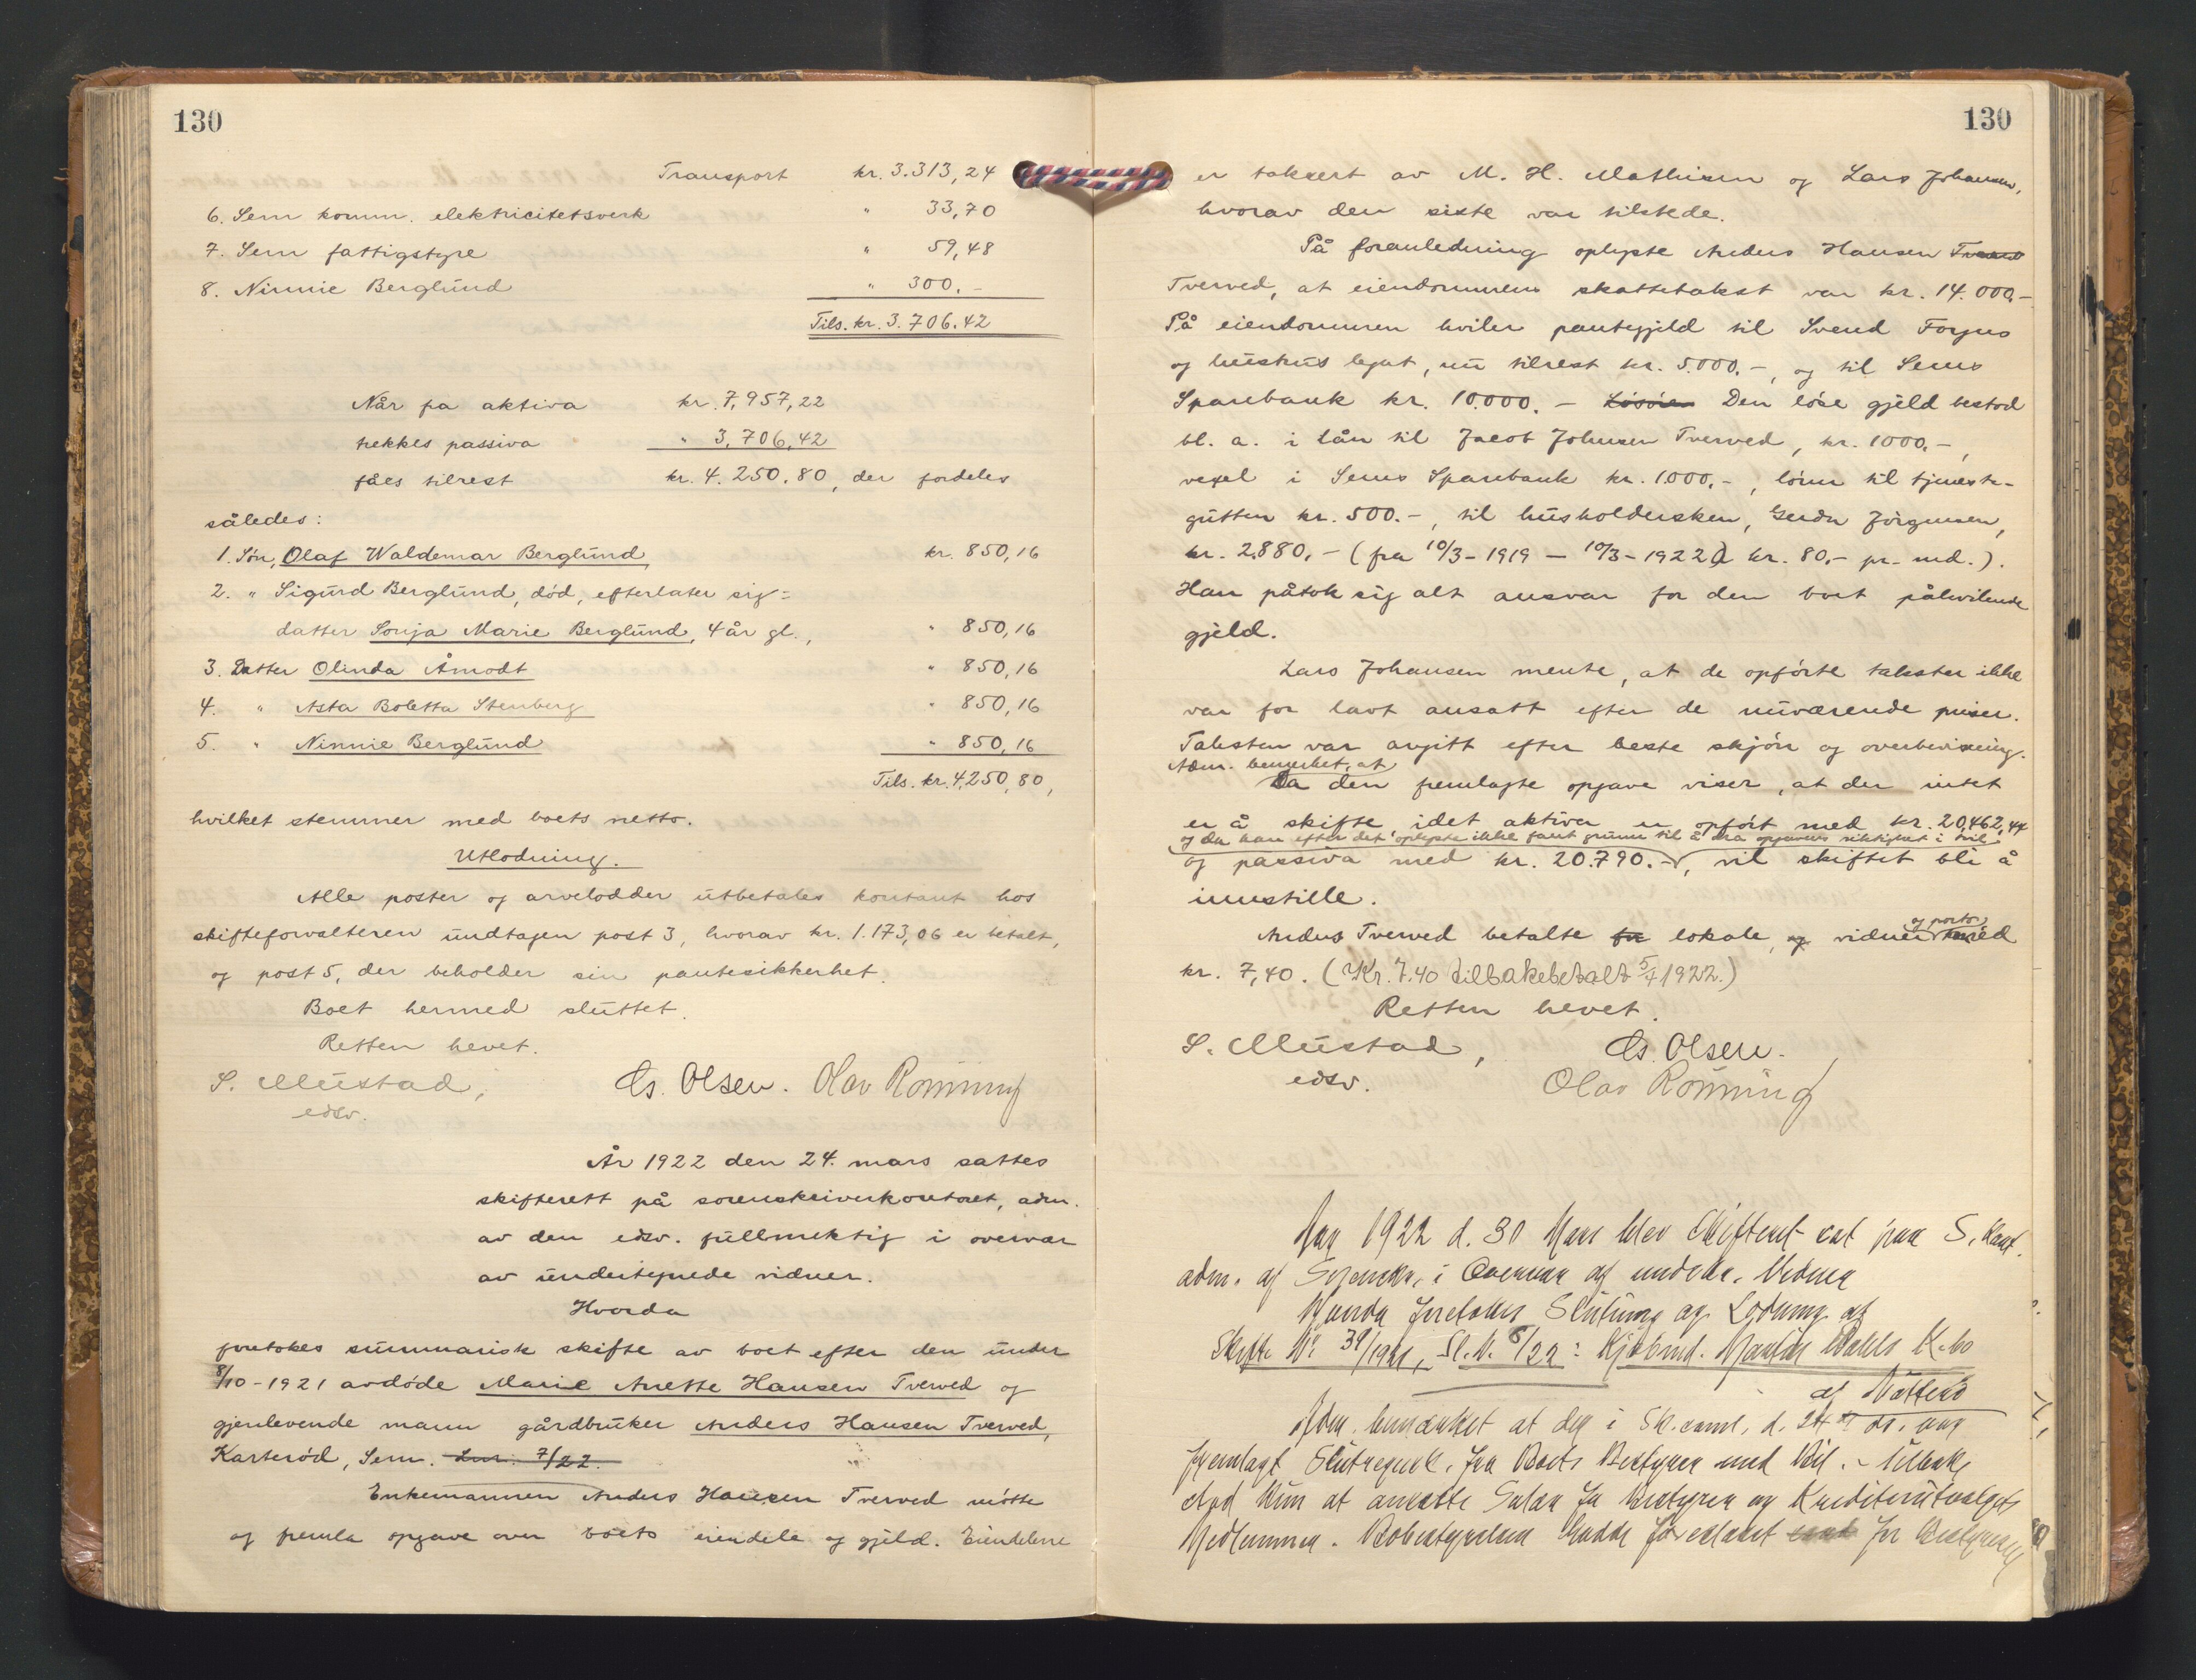 130
Transport kr. 3.313,24
6. Sem komm. elektricitetsverk " 33,70
7. Sem fattigstyre " 59,48
8. Ninnie Berglund " 300.-
Tils. kr. 3.706.42
Når fra aktiva kr. 7,957,22
trekkes passiva " 3,706,42
fåes tilrest kr. 4.250.80, der fordeles
således:
1. Søn, Olaf Waldemar Berglund, kr. 850,16
2. " Sigurd Berglund, død, efterlater sig:
datter Sonja Marie Berglund, 4 år gl., " 850,16
3. Datter Olinda Åmodt " 850,16
4. " Asta Boletta Stenberg " 850,16
5. " Ninnie Berglund " 850,16
Tils. kr. 4,250,80,
hvilket stemmer med boets netto.
Utlodning.
Alle poster og arvelodder utbetales kontant hos
skifteforvalteren undtagen post 3, hvorav kr. 1.173,06 er betalt,
og post 5, der beholder sin pantesikkerhet.
Boet hermed sluttet.
Retten hevet.
S. Mustad, Cs. Olsen. Olav Rönning
edsv.
År 1922 den 24. mars sattes
skifterett på sorenskriverkontoret, adm.
av den edsv. fullmektig i overvær
av undertegnede vidner.
Hvorda
foretokes summarisk skifte av boet efter den under
8/10-1921 avdøde Marie Anette Hansen Tverved og
gjenlevende mann gårdbruker Anders Hansen Tverved,
Karterød, Sem. 7/22.
Enkemannen Anders Hansen Tverved møtte
og fremla opgave over boets eiendele og gjeld. Eiendelene
130
er taksert av M. H. Mathisen og Lars Johansen,
hvorav den siste var tilstede.
På foranledning oplyste Anders Hansen
Tverved, at eiendommens skattetakst var kr. 14.000,-
På eiendommen hviler pantegjeld til Svend Foyns
og hustrus legat, nu tilrest kr. 5.000.-, og til Sems
Sparebank kr. 10.000.- Løsøre Den løse gjeld bestod
bl. a. i lån til Jacob Johnsen Tverved, kr. 1000.-,
vexel i Sems Sparebank kr. 1.000.-, lønn til tjeneste-
gutten kr. 500.-, til husholdersken, Gerda Jørgensen,
kr. 2.880.- (fra 10/3-1919 - 10/3-1922 à kr. 80.- pr. md.).
Han påtok sig alt ansvar for den boet påhvilende
gjeld.
Lars Johansen mente, at de opførte takster ikke
var for lavt ansatt efter de nuværende priser.
Taksten var avgitt efter beste skjøn og overbevisning.
Adm. bemerket, at
Da den fremlagte opgave viser, at der intet
er å skifte idet aktiva er opført med kr. 20,462,44
og da han efter det oplyste ikke fant grunn til å dra opgavens riktighet i tvil
og passiva med kr. 20.790.-, vil skiftet bli å
innstille.
og porto
Anders Tverved betalte for lokale, og vidner med
kr. 7,40. (Kr. 7.40 tilbakebetalt 5/4 1922.)
Retten hevet.
S. Mustad, Cs. Olsen.
edsv. Olav Rönning
Aar 1922 d. 30 Mars blev Skifteret sat paa S. kont.
adm. af Sorenskr. i Overvær af undskr. Vidner
Hvorda foretokes Slutning og Lodning af
Skifte No 39/1921, Sl. N. 8/22: Kjøbmd. Wahls K.bo
af Nøtterø
Adm. bemærket at der i Sk.saml. d. 24 ds. var
fremlagt Slutregnsk. fra Boets Bestyrer med Bil. - Tilbake
stod kun at ansætte Salær for Bestyrer og Kreditorutvalgets
Medlemmer. Bobestyrelsen hadde foreslaaet for Bestyreren